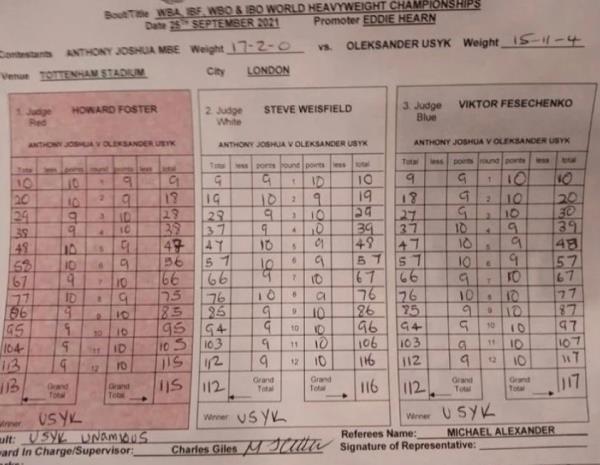 Bout/Title WBA, IBF, WBO & IBO WORLD HEAVYWEIGHT CHAMPIONSHIPS
Date 25TH SEPTEMBER 2021 Promoter EDDIE HEARN
Contestants ANTHONY JOSHUA MBE Weight 17-2-0 vs. OLEKSANDER USYK Weight 15-11-4
Venue TOTTENHAM STADIUM City LONDON
1. Judge HOWARD FOSTER
Red
ANTHONY JOSHUA V OLEKSANDER USYK
Total less points round points less total
10 10 1 9 9
20 10 2 9 18
29 9 3 10 28
38 9 4 10 38
48 10 5 9 47
58 10 6 9 56
67 9 7 10 66
77 10 8 9 75
86 9 9 10 85
95 9 10 10 95
104 9 11 10 105
113 9 12 10 115
113 Grand Total 115
Winner USYK
2. Judge STEVE WEISFIELD
White
ANTHONY JOSHUA V OLEKSANDER USYK
Total less points round points less total
9 9 1 10 10
19 10 2 9 19
28 9 3 10 29
37 9 4 10 39
47 10 5 9 48
57 10 6 9 57
66 9 7 10 67
76 10 8 9 76
85 9 9 10 86
94 9 10 10 96
103 9 11 10 106
112 9 12 10 116
112 Grand Total 116
Winner USYK
3. Judge VIKTOR FESECHENKO
Blue
ANTHONY JOSHUA V OLEKSANDER USYK
Total less points round points less total
9 9 1 10 10
18 9 2 10 20
27 9 3 10 30
37 10 4 9 39
47 10 5 9 48
57 10 6 9 57
66 9 7 10 67
76 10 8 10 77
85 9 9 10 87
94 9 10 10 97
103 9 11 10 107
112 9 12 10 117
112 Grand Total 117
Winner USYK
ult: USYK UNAMIOUS Referees Name: MICHAEL ALEXANDER
ward In Charge/Supervisor: Charles Giles Signature of Representative: